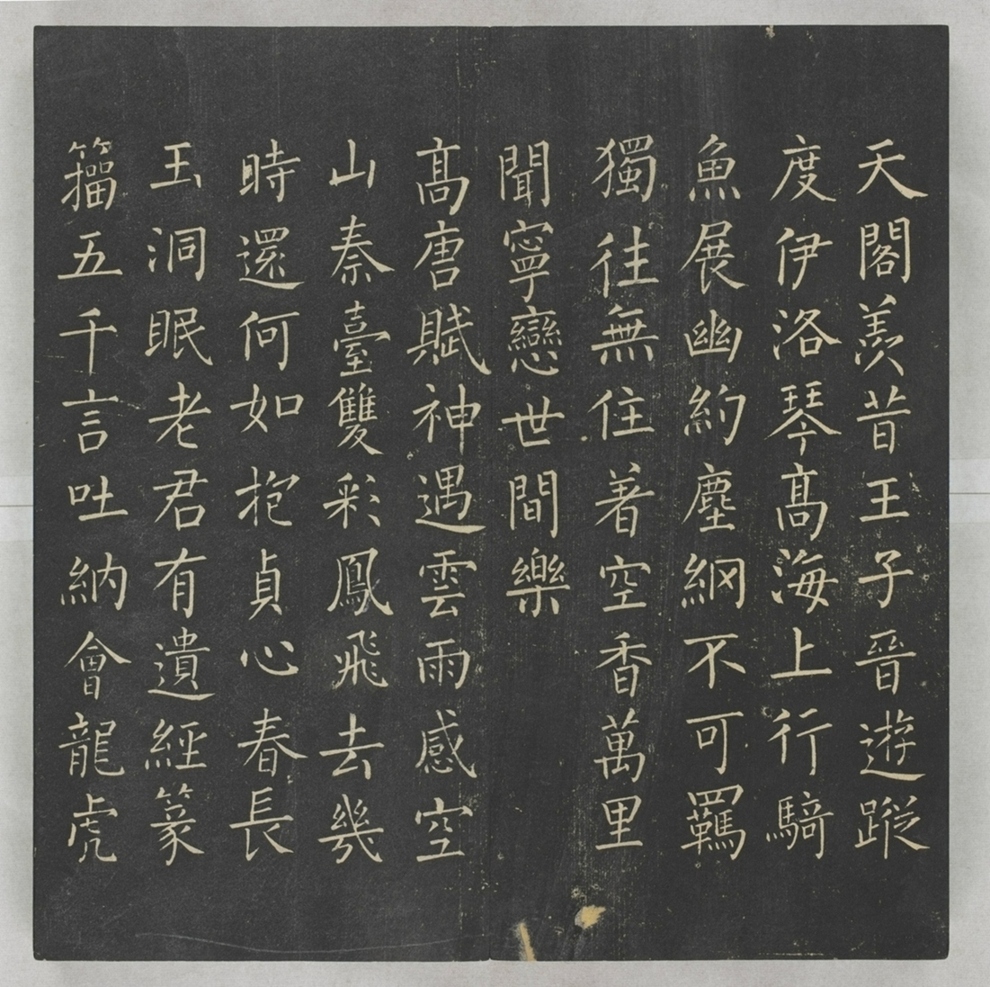 天閣羨昔王子晉遊蹤
度伊洛琴高海上行騎
魚展幽約塵網不可羈
獨往無住著空香萬里
聞寧戀世間樂
高唐賦神遇雲雨感空
山秦臺雙彩鳳飛去幾
時還何如抱貞心春長
玉洞眠老君有遺經篆
籀五千言吐納會龍虎